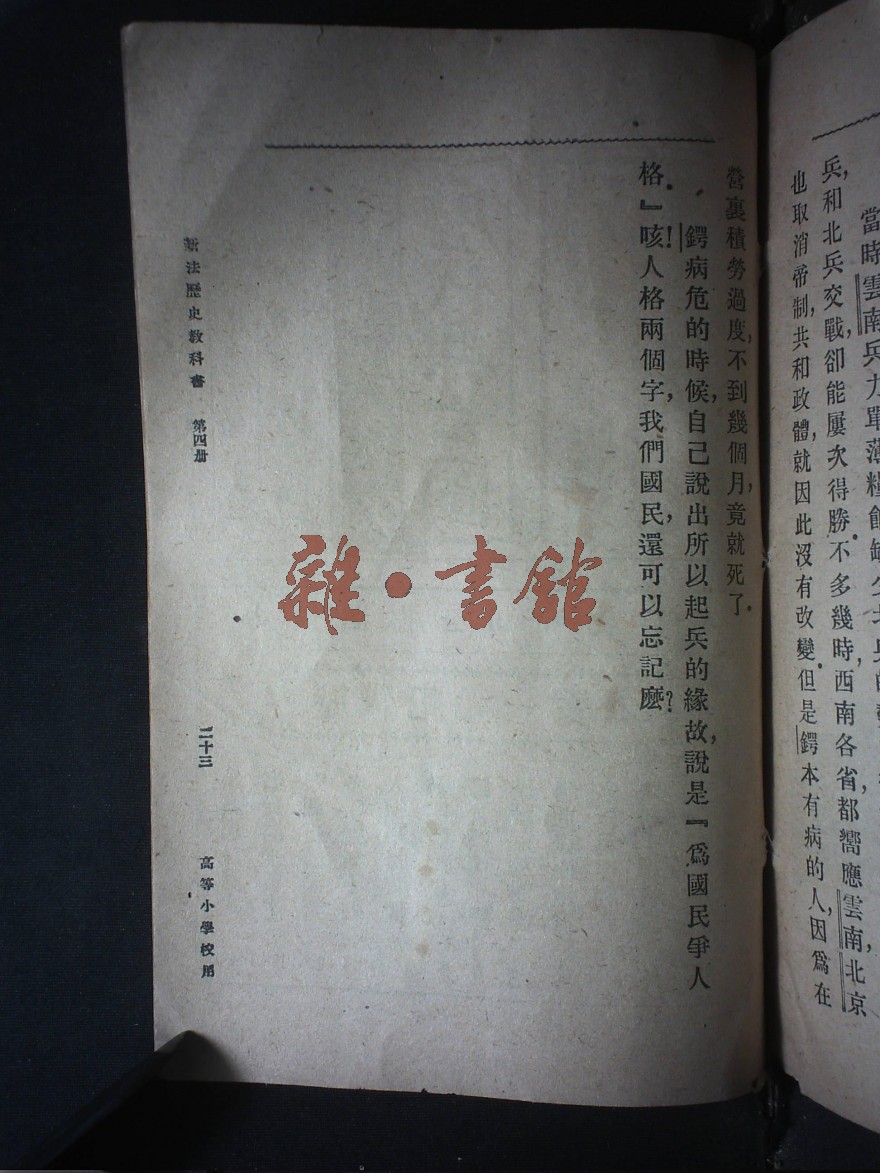 當時雲南兵力單薄糧餉缺少北兵的
兵,和北兵交戰,卻能屢次得勝.不多幾時,西南各省,都嚮應雲南,北京
也取消帝制,共和政體,就因此沒有改變.但是鍔本有病的人,因爲在
營裏積勞過度,不到幾個月,竟就死了.
鍔病危的時候,自己說出所以起兵的緣故,說是『爲國民爭人
格.』咳!人格兩個字,我們國民,還可以忘記麼?
新法歷史教科書 第四册 二十三 高等小學校用
雜·書館